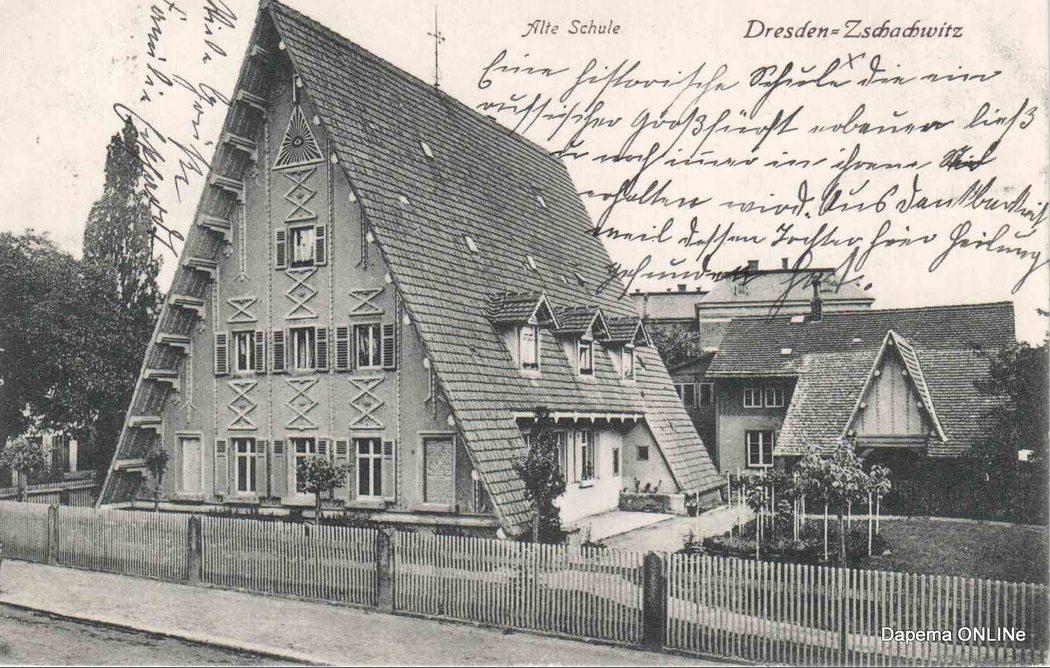 Alte Schule
Dresden-Zschachwitz
Eine historische Schule x die ein
russischer Großfürst erbauen ließ
u noch immer in ihrem
erhalten wird. Aus Dankbarkeit
weil dessen Tochter hier Heilung
gefunden hat.
Dapema ONLINe